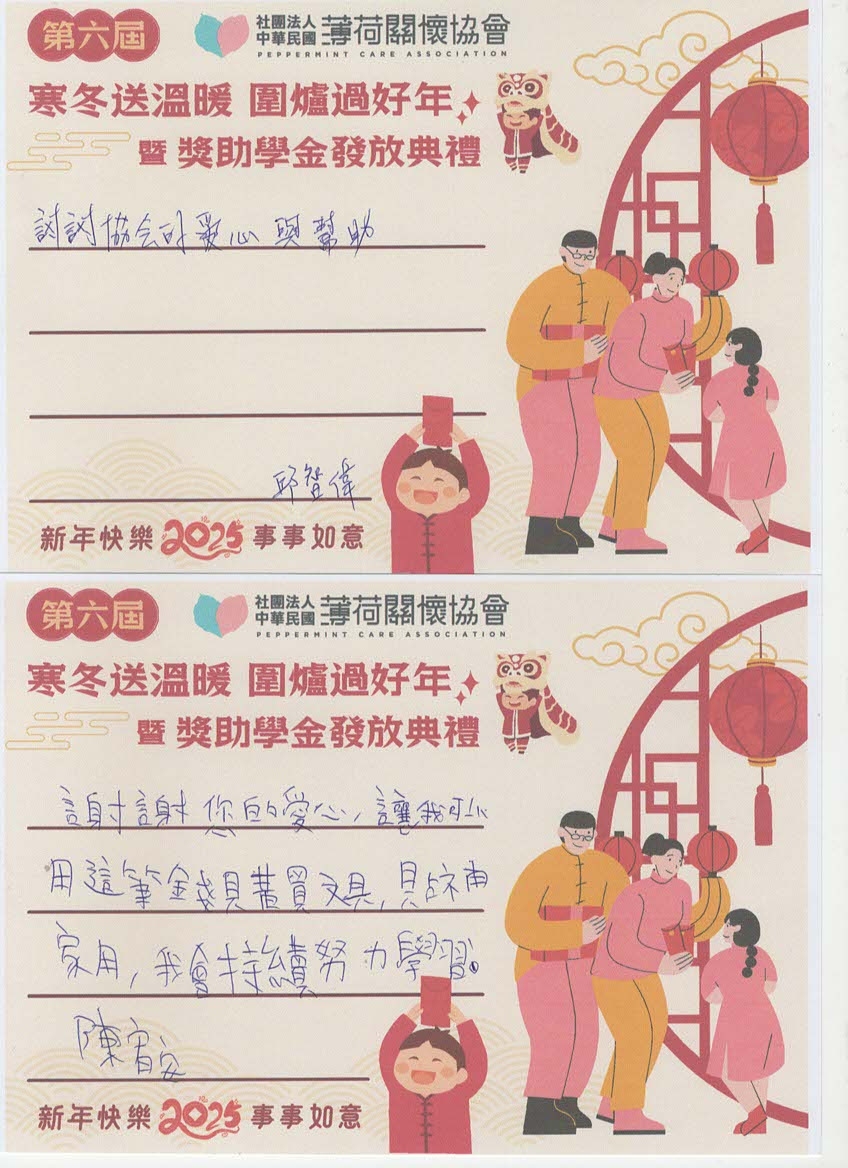 第六屆
社團法人
中華民國
薄荷關懷協會
PEPPERMINT CARE ASSOCIATION
寒冬送溫暖 圍爐過好年
暨 獎助學金發放典禮
謝謝協会的愛心與幫助
邱智偉
新年快樂 2025 事事如意
第六屆
社團法人
中華民國
薄荷關懷協會
PEPPERMINT CARE ASSOCIATION
寒冬送溫暖 圍爐過好年
暨 獎助學金發放典禮
謝謝您的愛心,讓我可以
用這筆金錢買文具,貼補
家用,我會持續努力學習。
陳宥安
新年快樂 2025 事事如意